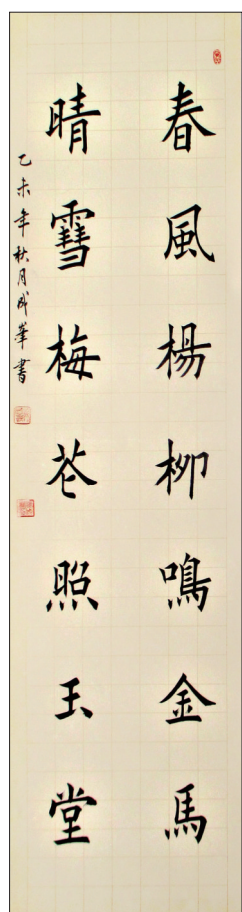 春風楊柳鳴金馬
晴雪梅花照玉堂
乙未年秋月成華書